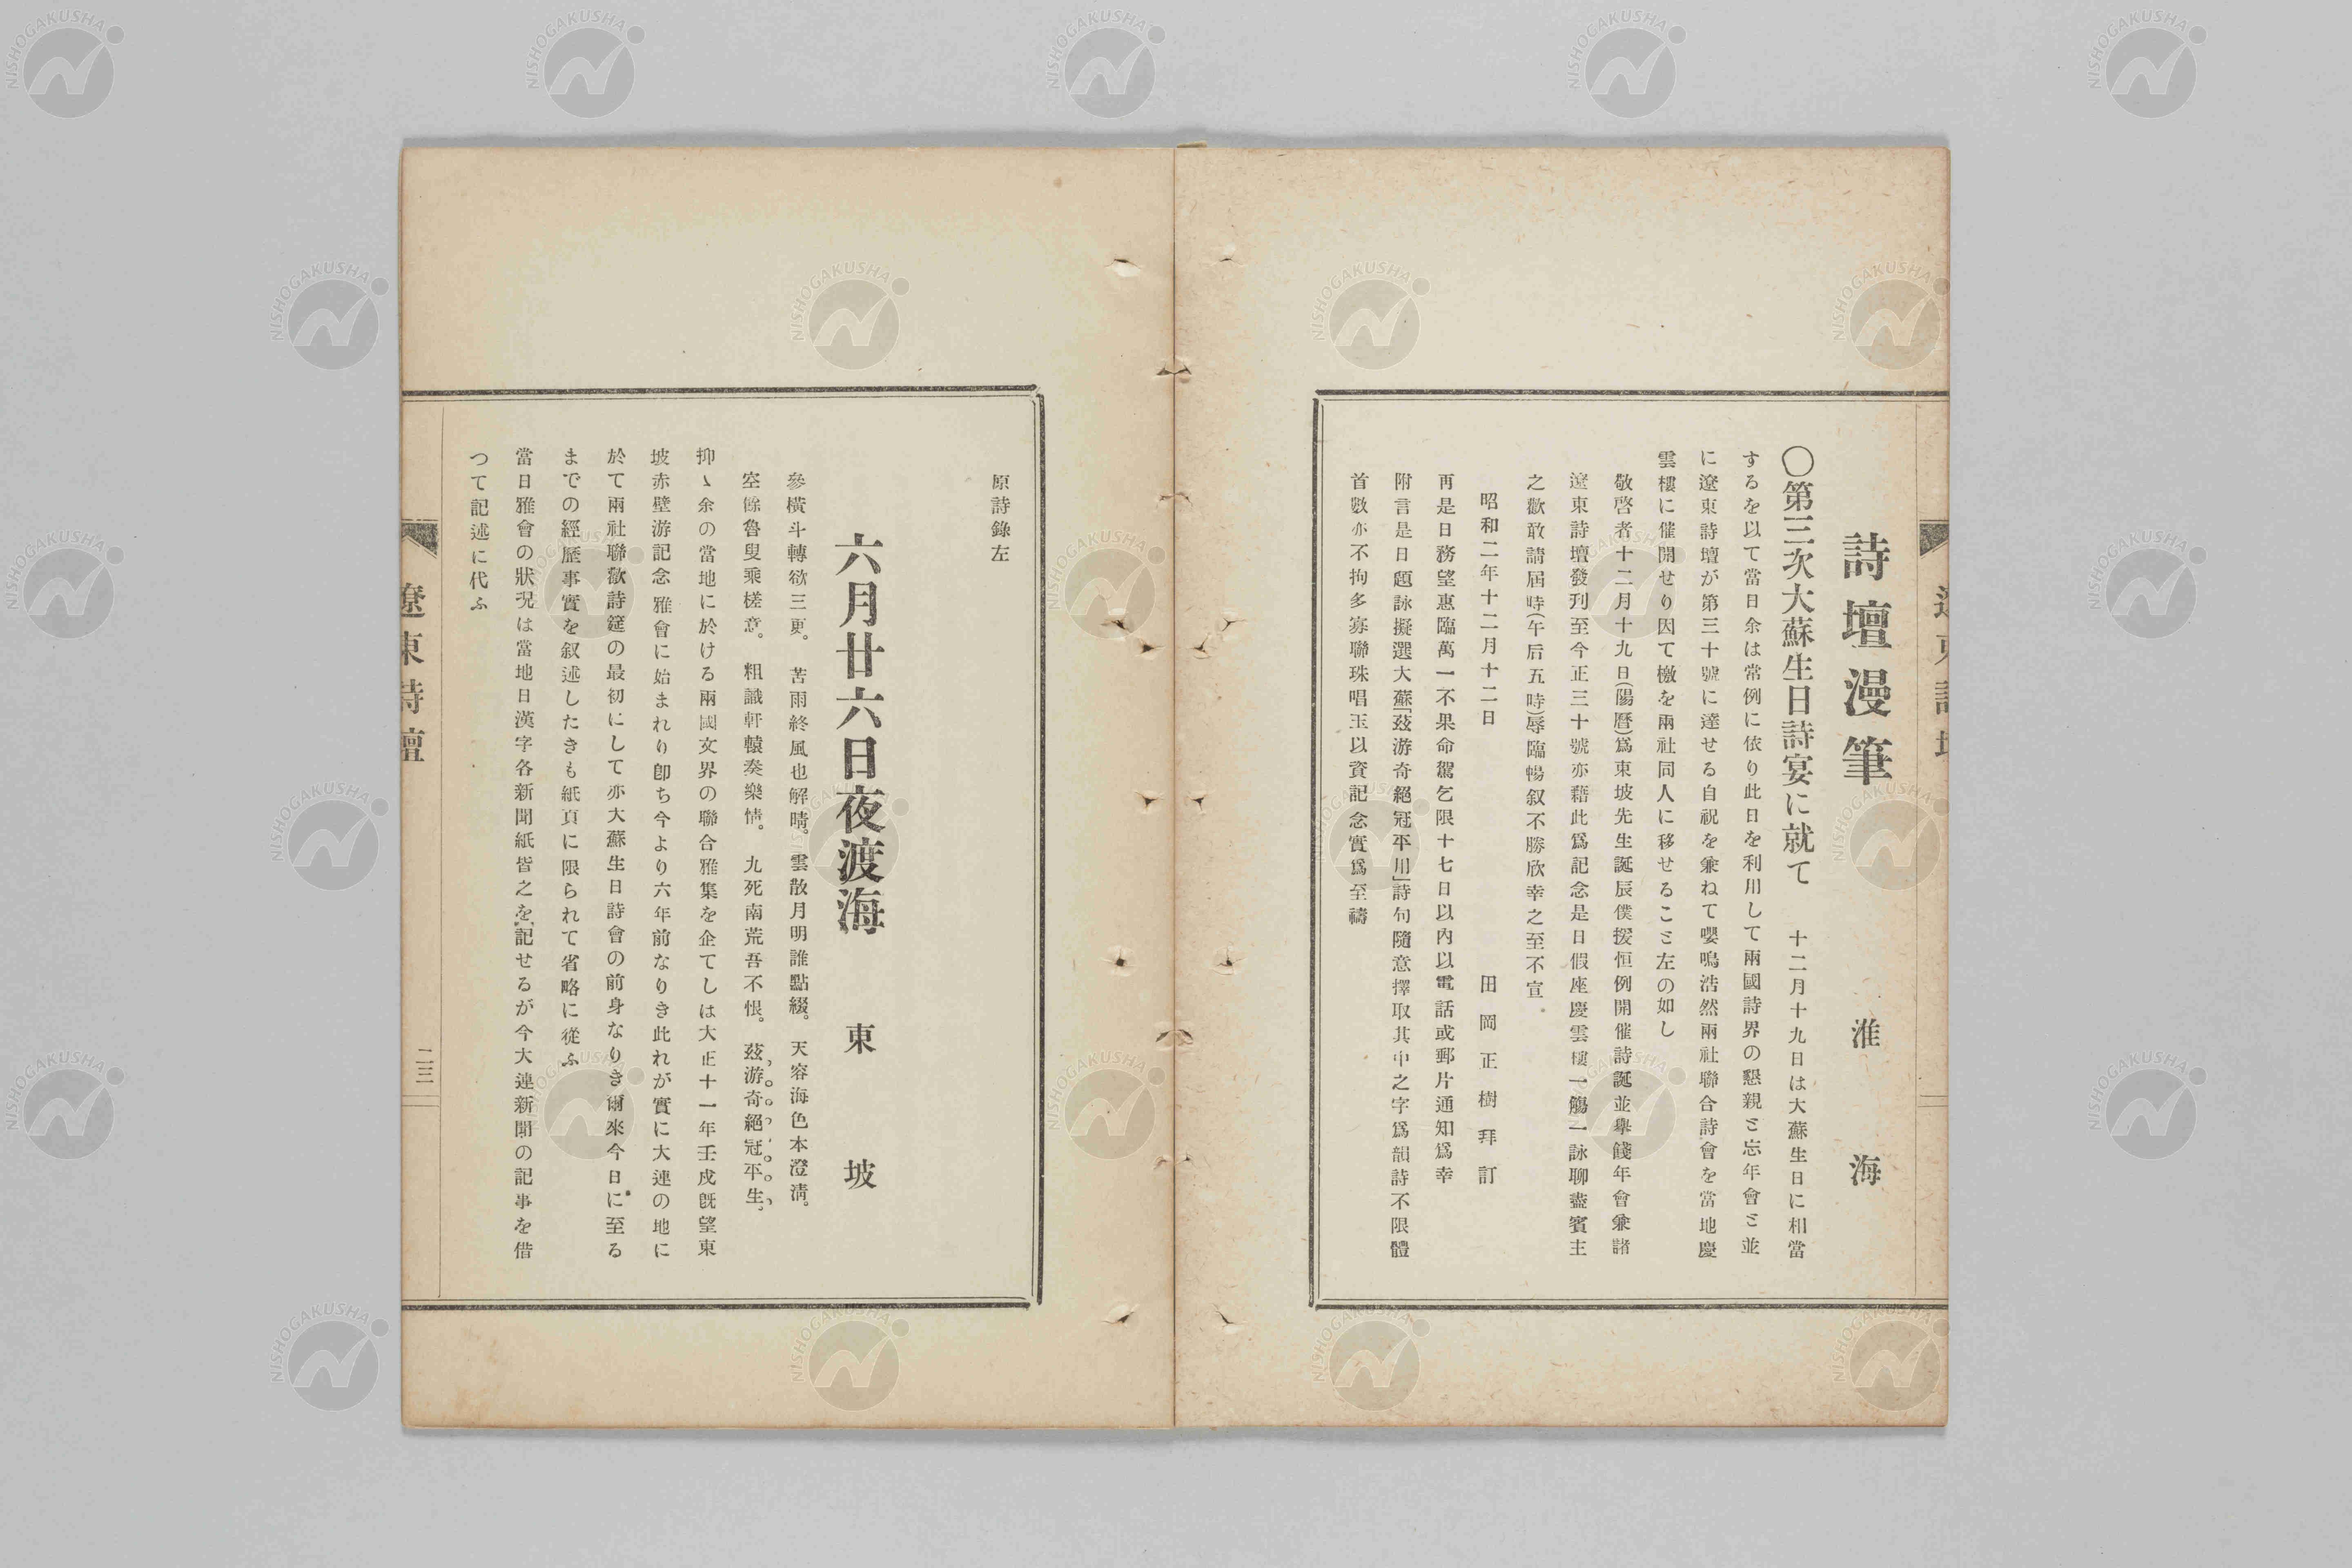 詩壇漫筆
淮海
〇第三次大蘇生日詩宴に就て 十二月十九日は大蘇生日に相當
するを以て當日余は常例に依り此日を利用して兩國詩界の懇親と忘年會と並
に遼東詩壇が第三十號に達せる自祝を兼ねて嚶鳴浩然兩社聯合詩會を當地慶
雲樓に催開せり因て檄を兩社同人に移せること左の如し
敬啓者十二月十九日(陽曆)爲東坡先生誕辰僕援恒例開催詩誕並擧餞年會兼諸
遼東詩壇發刊至今正三十號亦藉此爲記念是日假座慶雲樓一觴一詠聊盡賓主
之歡敢請屆時(午后五時)辱臨暢叙不勝欣幸之至不宣.
昭和二年十二月十二日
田岡正樹拜訂
再是日務望惠臨萬一不果命駕乞限十七日以內以電話或郵片通知爲幸
附言是日題詠擬選大蘇「茲游奇絕冠平川」詩句隨意擇取其中之字爲韻詩不限體
首數亦不拘多寡聯珠唱玉以資記念實爲至禱
原詩錄左
六月廿六日夜渡海
東坡
參橫斗轉欲三更。苦雨終風也解晴。雲散月明誰點綴。天容海色本澄淸。
空餘魯叟乘槎意。粗識軒轅奏樂情。九死南荒吾不恨。茲游奇絕冠平生。
抑〻余の當地に於ける兩國文界の聯合雅集を企てしは大正十一年壬戌旣望東
坡赤壁游記念雅會に始まれり卽ち今より六年前なりき此れが實に大連の地に
於て兩社聯歡詩筵の最初にして亦大蘇生日詩會の前身なりき爾來今日に至る
までの經歷事實を叙述したきも紙頁に限られて省略に從ふ
當日雅會の狀況は當地日漢字各新聞紙皆之を記せるが今大連新聞の記事を借
つて記述に代ふ
遼東詩壇
二三
NISHOGAKUSHA